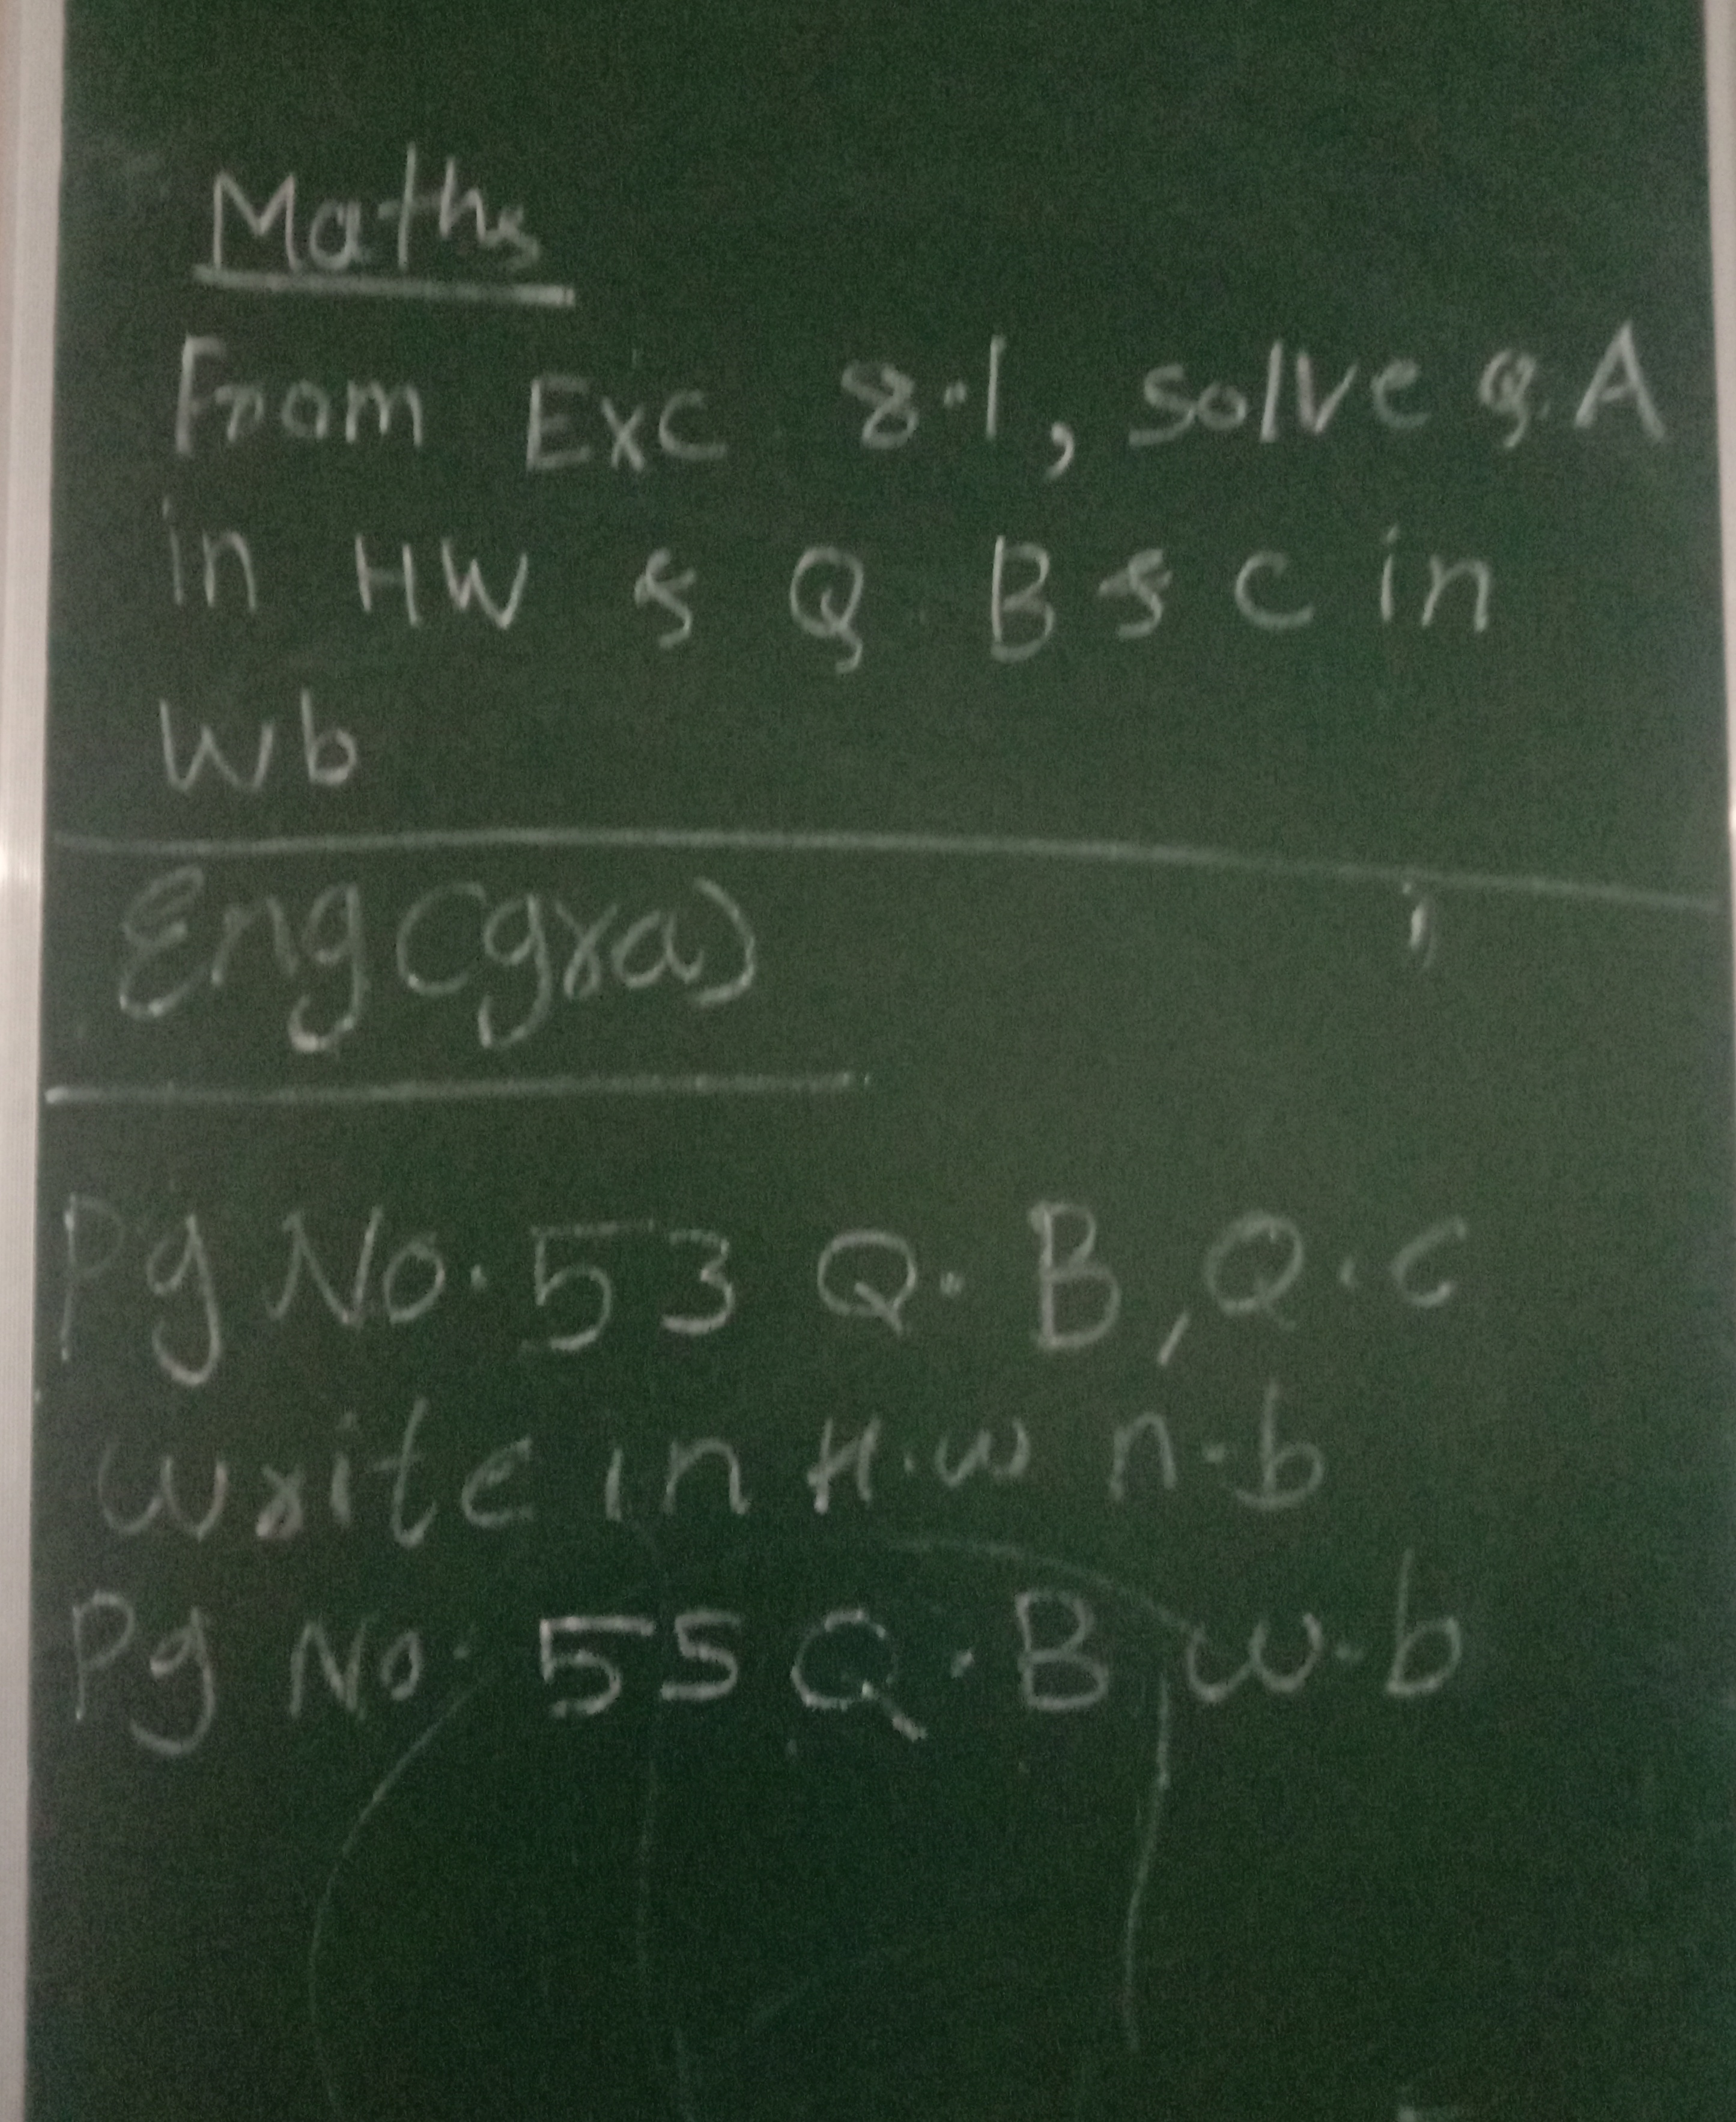 Maths
From Exc 8.1, solve Q.A
in HW & Q. B & C in
Wb
Eng (gra)
Pg No. 53 Q. B, Q. C
write in H.W n.b
Pg No. 55 Q. B w.b